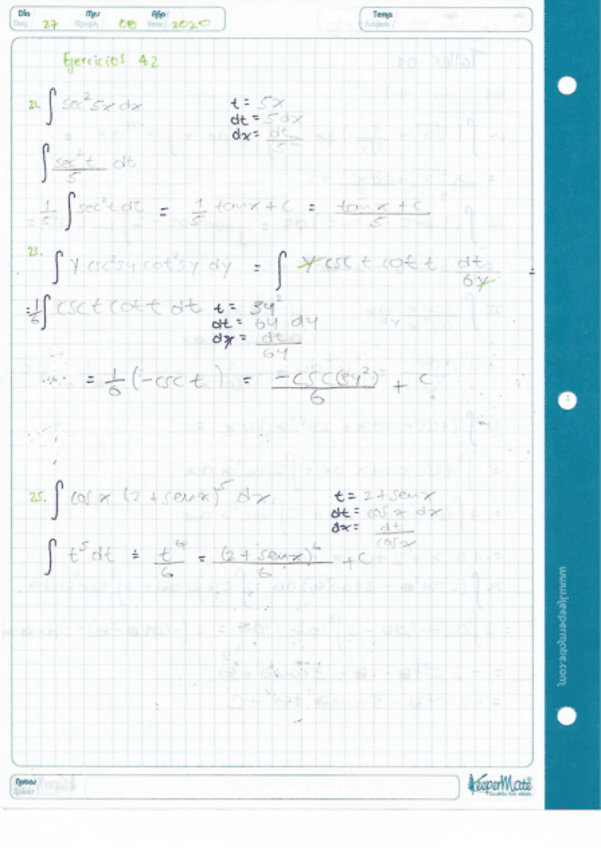 Día Mes Año Tema
Day 27 Month 08 Year 2020
Ejercicios 4.2
21. ∫ sec² 5x dx t = 5x
dt = 5 dx
dx = dt/5
∫ sec² t/5 dt
1/5 ∫ sec² t dt = 1/5 tan x + C = tan x + C/5
23. ∫ y csc 3y cot² 3y dy = ∫ y csc t cot t dt/6y =
= 1/6 ∫ csc t cot t dt t = 3y²
dt = 6y dy
dy = dt/6y
= 1/6 (-csc t) = -csc(3y²)/6 + C
25. ∫ cos x (2 + sen x)⁵ dx t = 2 + sen x
dt = cos x dx
dx = dt/cos x
∫ t⁵ dt = t⁶/6 = (2 + sen x)⁶/6 + C
Notas
KeeperMate
www.keepermate.com